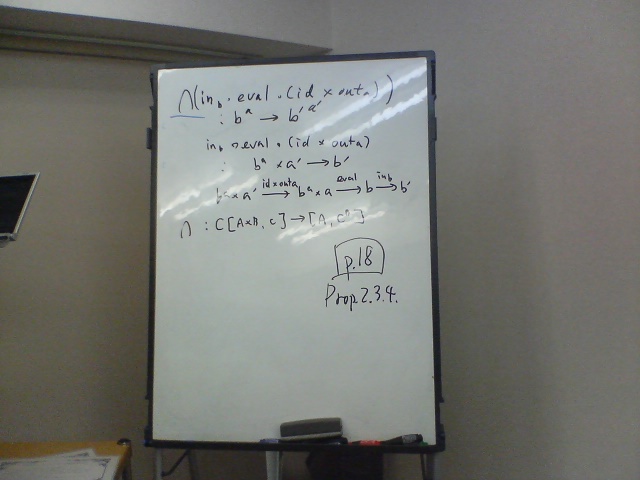 Λ(in_b ∘ eval ∘ (id × out_a))
: b^a → b'^a'
in_b ∘ eval ∘ (id × out_a)
: b^a × a' → b'
b^a × a' –id×out_a→ b^a × a –eval→ b –in_b→ b'
Λ : C[A×B, C] → [A, C^B]
p.18
Prop 2.3.4.